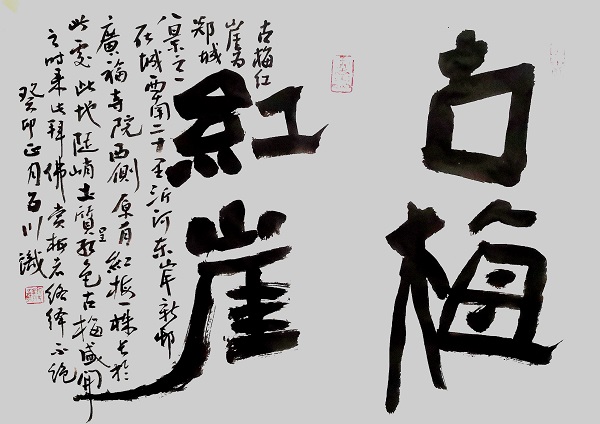 古梅
紅崖
古梅红
崖为
郯城
八景之一
在城西南二十里沂河东岸新邨
廣福寺院西側原有紅梅一株长於
此處此地陡峭土質呈色古梅盛開
之时来此拜佛赏梅者络绎不绝
癸卯正月百川識